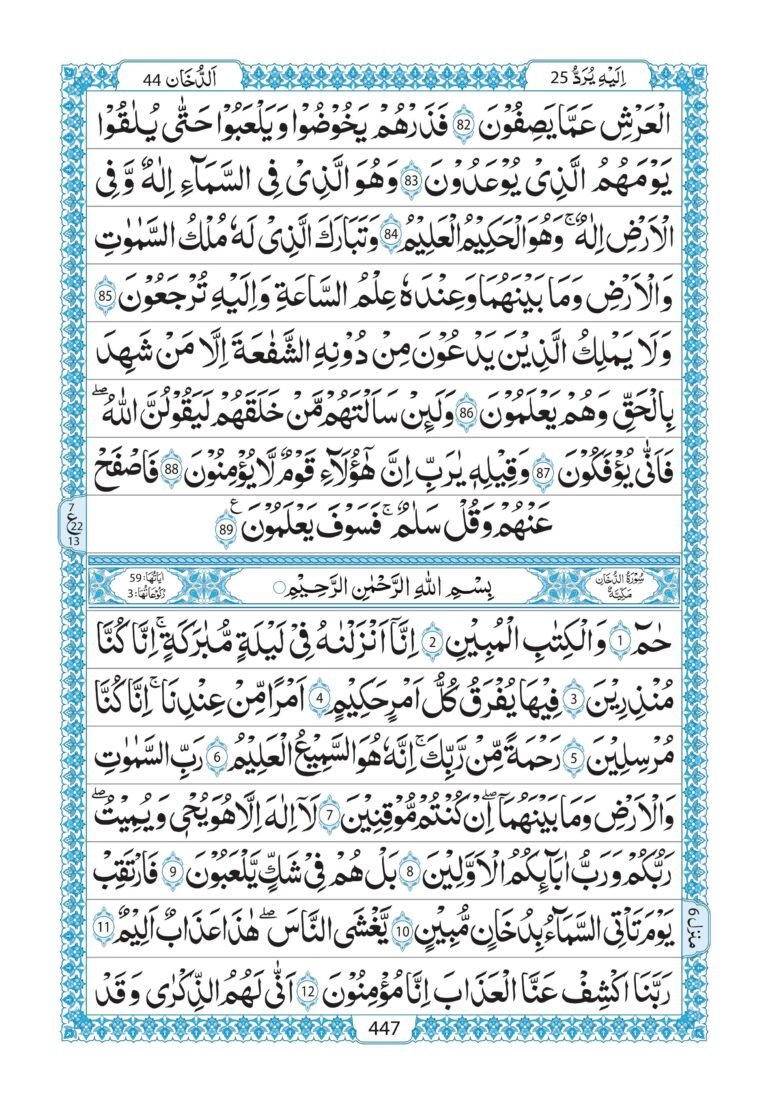 اِلَیْهِ یُرَدُّ 25
اَلدُّخَان 44
الْعَرْشِ عَمَّا یَصِفُوْنَ 82 فَذَرْهُمْ یَخُوْضُوْا وَیَلْعَبُوْا حَتّٰی یُلٰقُوْا
یَوْمَهُمُ الَّذِیْ یُوْعَدُوْنَ 83 وَهُوَ الَّذِیْ فِی السَّمَآءِ اِلٰهٌ وَّفِی
الْاَرْضِ اِلٰهٌ ۚ وَهُوَ الْحَكِیْمُ الْعَلِیْمُ 84 وَتَبَارَكَ الَّذِیْ لَهٗ مُلْكُ السَّمٰوٰتِ
وَالْاَرْضِ وَمَا بَیْنَهُمَا وَعِنْدَهٗ عِلْمُ السَّاعَةِ وَاِلَیْهِ تُرْجَعُوْنَ 85
وَلَا یَمْلِكُ الَّذِیْنَ یَدْعُوْنَ مِنْ دُوْنِهِ الشَّفٰعَةَ اِلَّا مَنْ شَهِدَ
بِالْحَقِّ وَهُمْ یَعْلَمُوْنَ 86 وَلَىِٕنْ سَاَلْتَهُمْ مَّنْ خَلَقَهُمْ لَیَقُوْلُنَّ اللّٰهُ ۖ
فَاَنّٰی یُؤْفَكُوْنَ 87 وَقِیْلِهٖ یٰرَبِّ اِنَّ هٰۤؤُلَآءِ قَوْمٌ لَّا یُؤْمِنُوْنَ 88 فَاصْفَحْ
عَنْهُمْ وَقُلْ سَلٰمٌ ۚ فَسَوْفَ یَعْلَمُوْنَ 89 ع
7
ع 22
13
سُوْرَةُ الدُّخَان
مَكِّیَّةٌ
بِسْمِ اللّٰهِ الرَّحْمٰنِ الرَّحِیْمِ
اٰیَاتُهَا: 59
رُكُوْعَاتُهَا: 3
حٰمٓ 1 وَالْكِتٰبِ الْمُبِیْنِ 2 اِنَّاۤ اَنْزَلْنٰهُ فِیْ لَیْلَةٍ مُّبٰرَكَةٍ ۚ اِنَّا كُنَّا
مُنْذِرِیْنَ 3 فِیْهَا یُفْرَقُ كُلُّ اَمْرٍ حَكِیْمٍ 4 اَمْرًا مِّنْ عِنْدِنَا ۚ اِنَّا كُنَّا
مُرْسِلِیْنَ 5 رَحْمَةً مِّنْ رَّبِّكَ ۚ اِنَّهٗ هُوَ السَّمِیْعُ الْعَلِیْمُ 6 رَبِّ السَّمٰوٰتِ
وَالْاَرْضِ وَمَا بَیْنَهُمَاۤ ۖ اِنْ كُنْتُمْ مُّوْقِنِیْنَ 7 لَاۤ اِلٰهَ اِلَّا هُوَ یُحْیٖ وَیُمِیْتُ ۖ
رَبُّكُمْ وَرَبُّ اٰبَآىِٕكُمُ الْاَوَّلِیْنَ 8 بَلْ هُمْ فِیْ شَكٍّ یَّلْعَبُوْنَ 9 فَارْتَقِبْ
یَوْمَ تَاْتِی السَّمَآءُ بِدُخَانٍ مُّبِیْنٍ 10 یَّغْشَی النَّاسَ ۖ هٰذَا عَذَابٌ اَلِیْمٌ 11
منزل 6
رَبَّنَا اكْشِفْ عَنَّا الْعَذَابَ اِنَّا مُؤْمِنُوْنَ 12 اَنّٰی لَهُمُ الذِّكْرٰی وَقَدْ
447